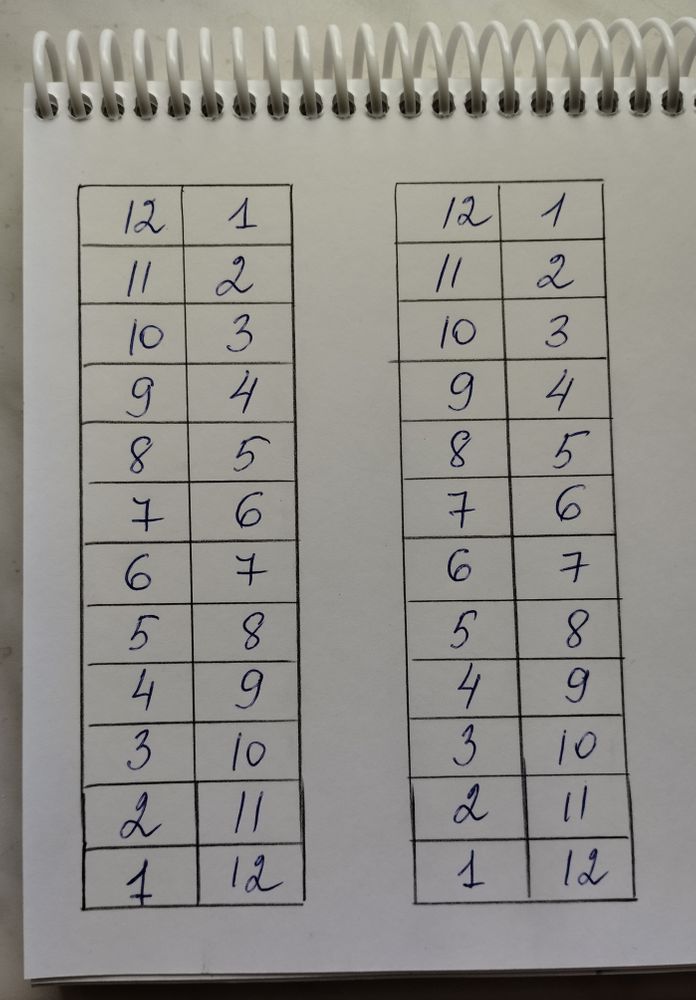 12 1 12 1
11 2 11 2
10 3 10 3
9 4 9 4
8 5 8 5
7 6 7 6
6 7 6 7
5 8 5 8
4 9 4 9
3 10 3 10
2 11 2 11
1 12 1 12